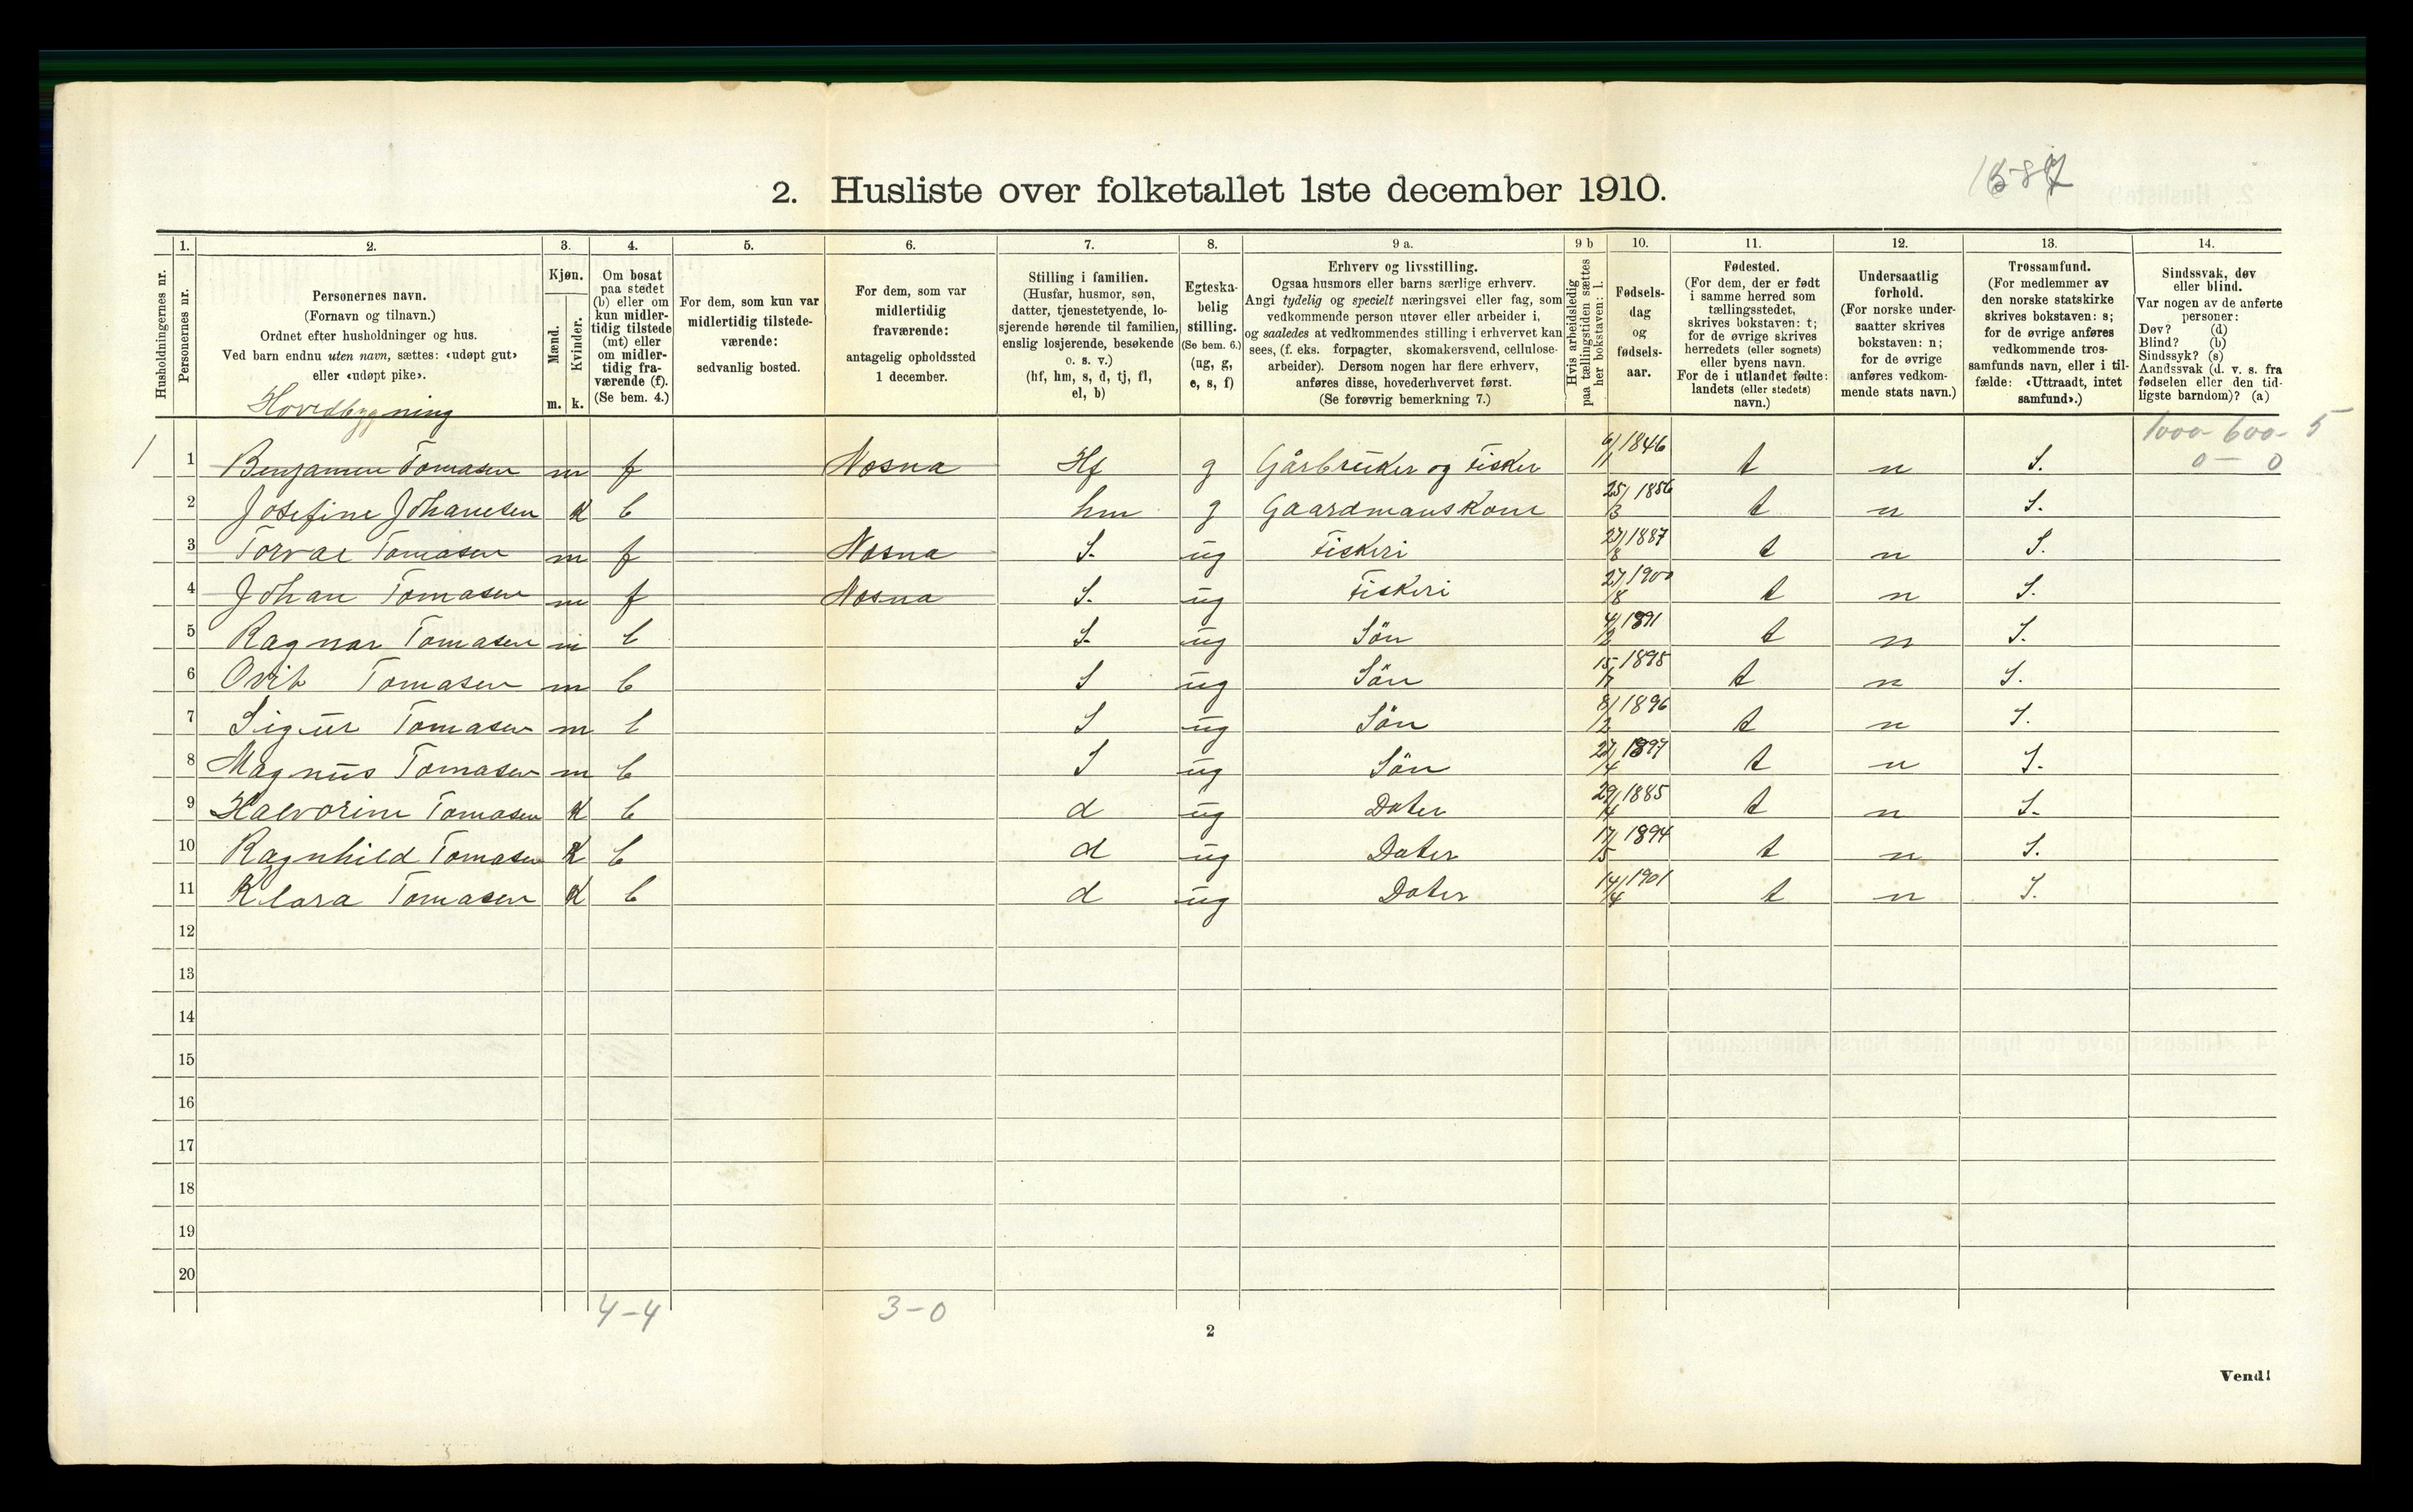 2. Husliste over folketallet 1ste december 1910.
1. 2. 3. 4. 5. 6. 7. 8. 9 a. 9 b 10. 11. 12. 13. 14.
Husholdningernes nr.
Personernes nr.
Personernes navn.
(Fornavn og tilnavn.)
Ordnet efter husholdninger og hus.
Ved barn endnu uten navn, sættes: «udøpt gut»
eller «udøpt pike».
Hovedbygning
Kjøn.
Mænd.
Kvinder.
m. k.
Om bosat
paa stedet
(b) eller om
kun midler-
tidig tilstede
(mt) eller
om midler-
tidig fra-
værende (f).
(Se bem. 4.)
For dem, som kun var
midlertidig tilstede-
værende:
sedvanlig bosted.
For dem, som var
midlertidig
fraværende:
antagelig opholdssted
1 december.
Stilling i familien.
(Husfar, husmor, søn,
datter, tjenestetyende, lo-
sjerende hørende til familien,
enslig losjerende, besøkende
o. s. v.)
(hf, hm, s, d, tj, fl,
el, b)
Egteska-
belig
stilling.
(Se bem. 6.)
(ug, g,
e, s, f)
Erhverv og livsstilling.
Ogsaa husmors eller barns særlige erhverv.
Angi tydelig og specielt næringsvei eller fag, som
vedkommende person utøver eller arbeider i,
og saaledes at vedkommendes stilling i erhvervet kan
sees, (f. eks. forpagter, skomakersvend, cellulose-
arbeider). Dersom nogen har flere erhverv,
anføres disse, hovederhvervet først.
(Se forøvrig bemerkning 7.)
Hvis arbeidsledig
paa tællingstiden sættes
her bokstaven: l.
Fødsels-
dag
og
fødsels-
aar.
Fødested.
(For dem, der er født
i samme herred som
tællingsstedet,
skrives bokstaven: t;
for de øvrige skrives
herredets (eller sognets)
eller byens navn.
For de i utlandet fødte:
landets (eller stedets)
navn.)
Undersaatlig
forhold.
(For norske under-
saatter skrives
bokstaven: n;
for de øvrige
anføres vedkom-
mende stats navn.)
Trossamfund.
(For medlemmer av
den norske statskirke
skrives bokstaven: s;
for de øvrige anføres
vedkommende tros-
samfunds navn, eller i til-
fælde: «Uttraadt, intet
samfund».)
Sindssvak, døv
eller blind.
Var nogen av de anførte
personer:
Døv? (d)
Blind? (b)
Sindssyk? (s)
Aandssvak (d. v. s. fra
fødselen eller den tid-
ligste barndom)? (a)
1000- 600- 5
0 — 0
1 1 Benjamen Tomasen m f Nosna Hf g Gårbruker og Fisker 6/11 1846 t n S.
2 Josefine Johanesen K b hm g Gaardmanskone 25/3 1856 t n S.
3 Torval Tomasen m f Nosna S. ug Fiskeri 27/8 1887 t n S.
4 Johan Tomasen m f Nosna S. ug Fiskeri 27/8 1900 t n S.
5 Ragnar Tomasen m b S. ug Sön 4/2 1891 t n S.
6 Ovit Tomasen m b S ug Sön 1895 t n S.
7 Sigur Tomasen m b S ug Sön 8/2 1896 t n S.
8 Magnus Tomasen m b S ug Sön 27/4 1897 t n S.
9 Halvorine Tomasen K b d ug Dater 29/4 1885 t n S.
10 Ragnhild Tomasen K b d ug Dater 17/5 1894 t n S.
11 Klara Tomasen K b d ug Dater 14/4 1901 t n S.
12
13
14
15
16
17
18
19
20
4-4 3-0
2
Vend!